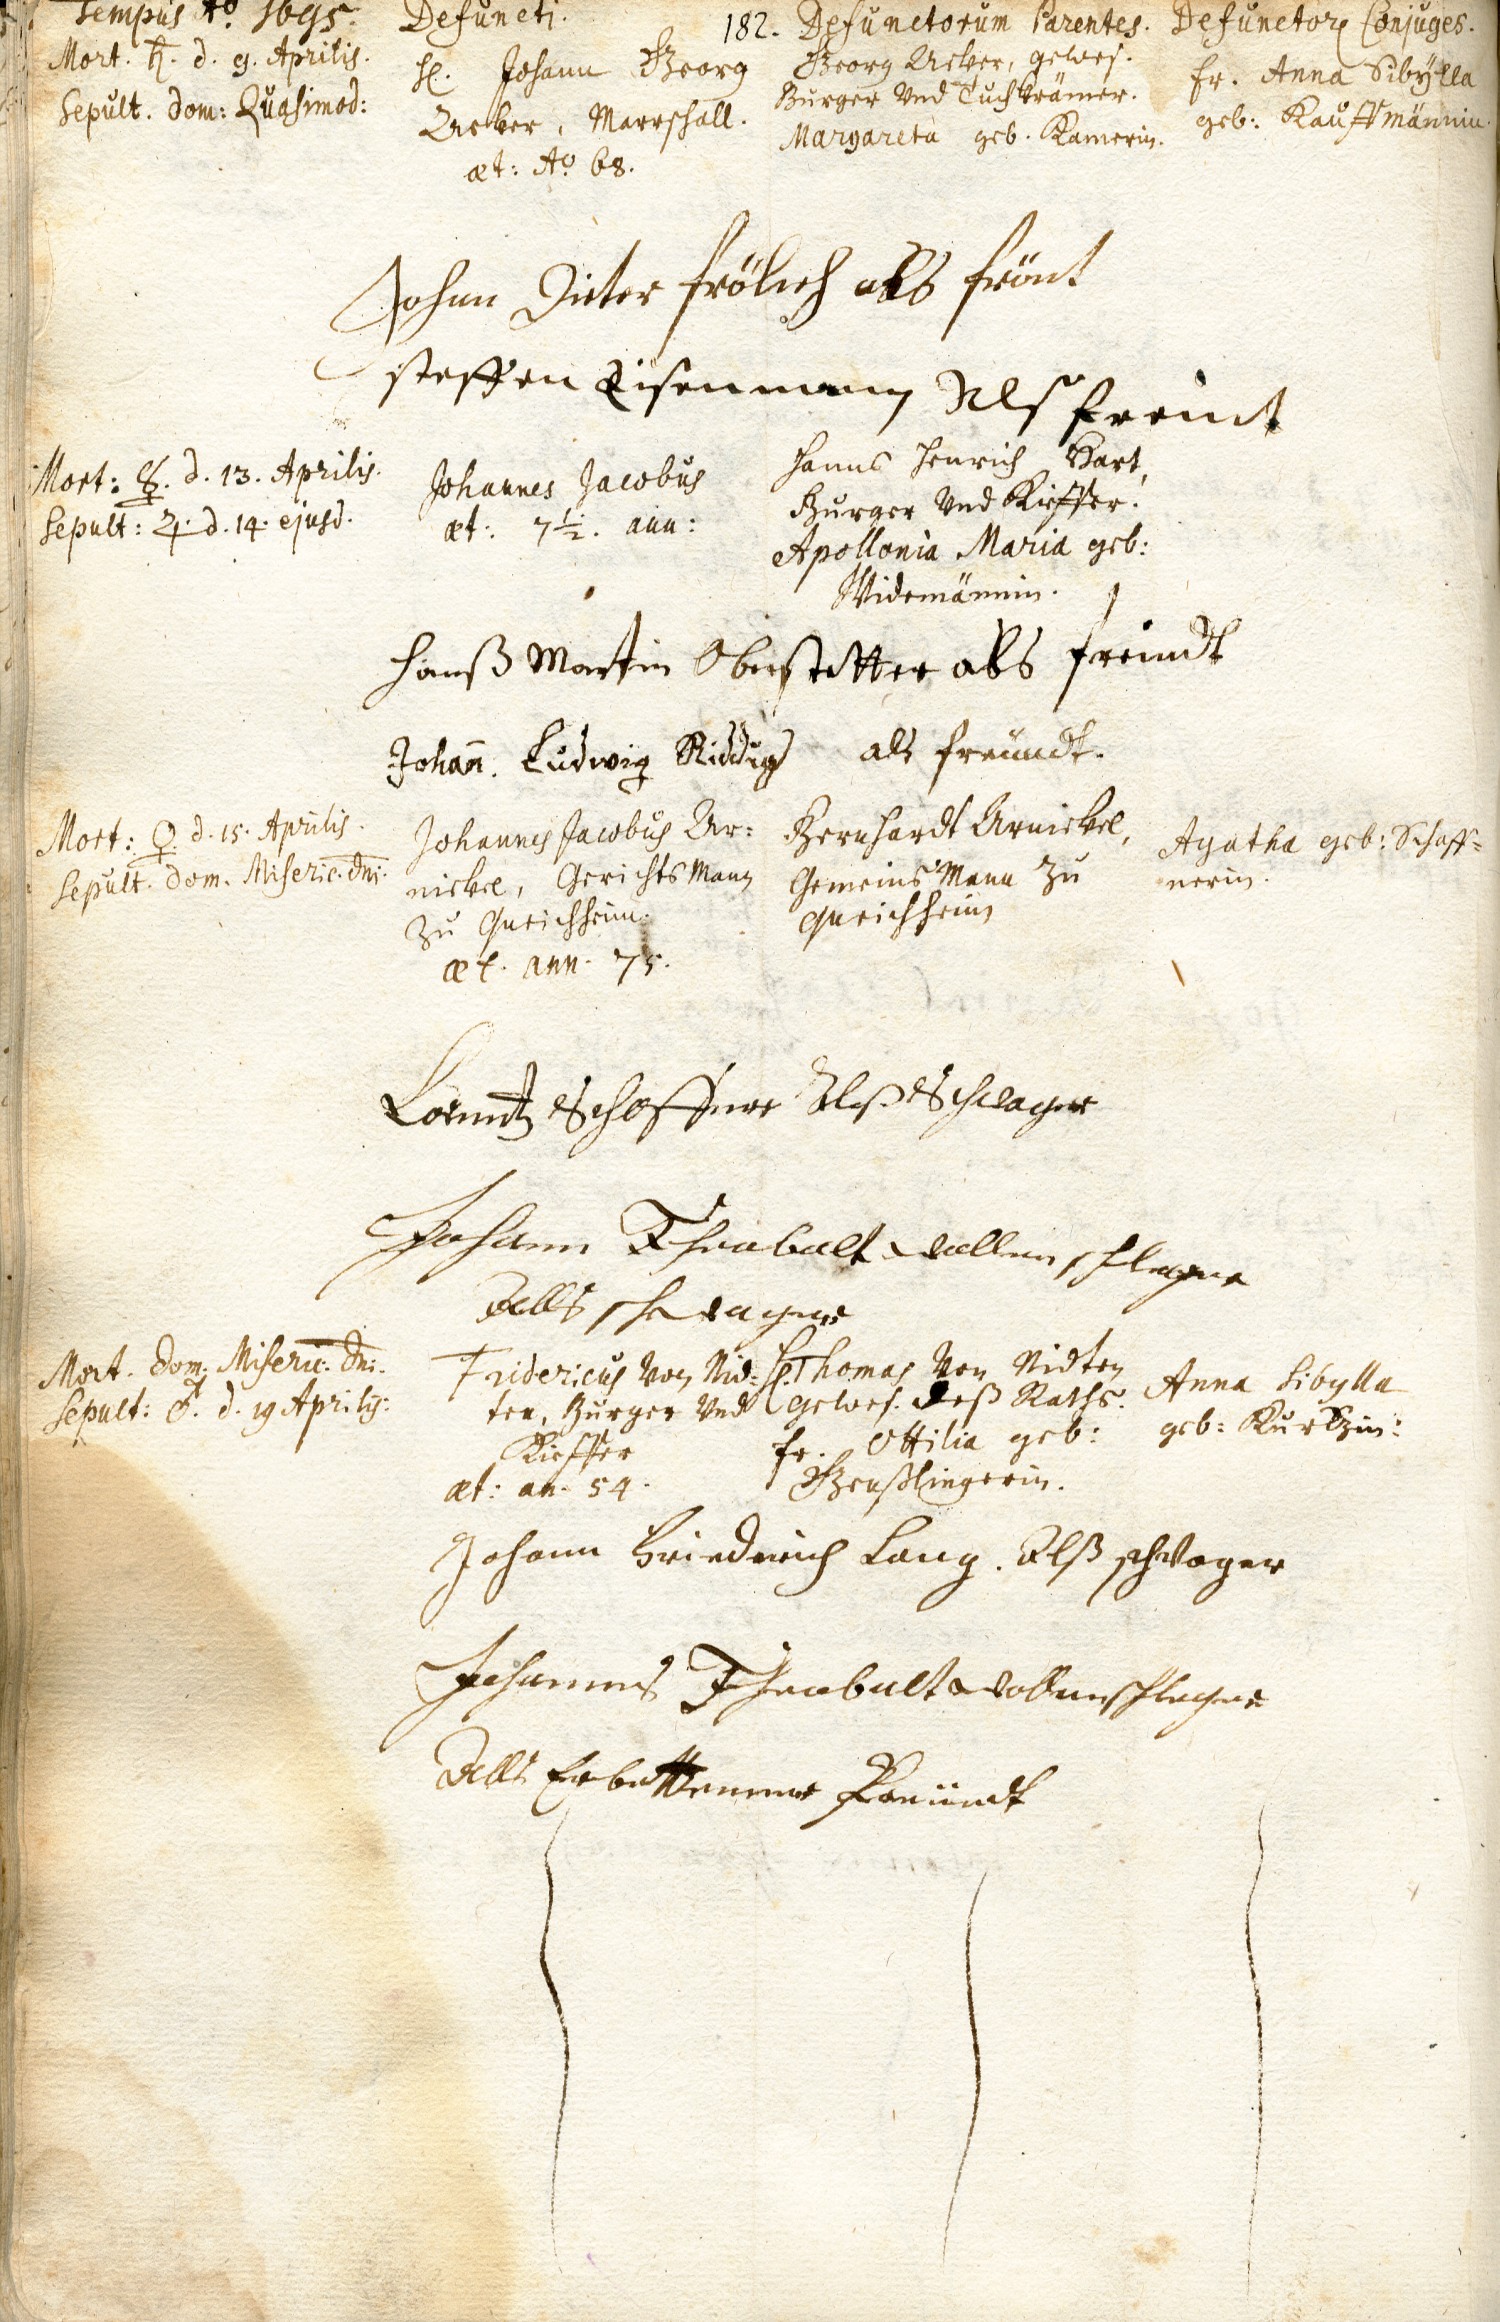 Tempus Ao. 1695. Defuncti. 182. Defunctorum Parentes. Defunctor. Conjuges.
Mort. ♄. d. 9. Aprilis.
Sepult. Dom: Quasimod:
H. Johann Georg
Acker, Marschall.
æt: Ao. 68.
Georg Acker, gewes.
Burger und Tuchkrämer.
Margareta geb. Kamerin.
Fr. Anna Sibÿlla
geb: Kauffmännin.
Johan Dieter frölich als frönt
steffen Eisenmann Als freint
Mort: ☿. d. 13. Aprilis.
Sepult: ♃. d. 14. ejusd.
Johannes Jacobus
æt. 7½. ann:
Hanns Henrich Hart,
Burger und Kieffer.
Apollonia Maria geb:
Widemännin.
Hanß Martin Oberstetter als freindt
Johan̄. Ludwig als freündt.
Mort: ♀. d. 15. Aprilis.
Sepult. Dom. Miseric. Dni.
Johannes Jacobus Ar=
nickel, Gerichts Mann
zu Queichheim.
æt. ann. 75.
Bernhardt Arnickel,
Gemeins Mann zu
Queichheim
Agatha geb: Schaff=
nerin.
Lorentz Schoffner Alß Schwager
Johann Theobalt Wallenschlager
Alls schwager
Mort. Dom. Miseric: Dni.
Sepult: ♂. d. 19 Aprilis:
Fridericus von Nid=
ten, Burger und
Kieffer
æt: an. 54.
H. Thomas von Nidten
gewes. deß Raths.
Fr. Ottilia geb:
Genßlingerin.
Anna Sibylla
geb: Kurtzin:
Johann Friedrich Lang. Alß schwager
Johannes Theobalt Wollenschlager
Alls Erbettenner Freündt